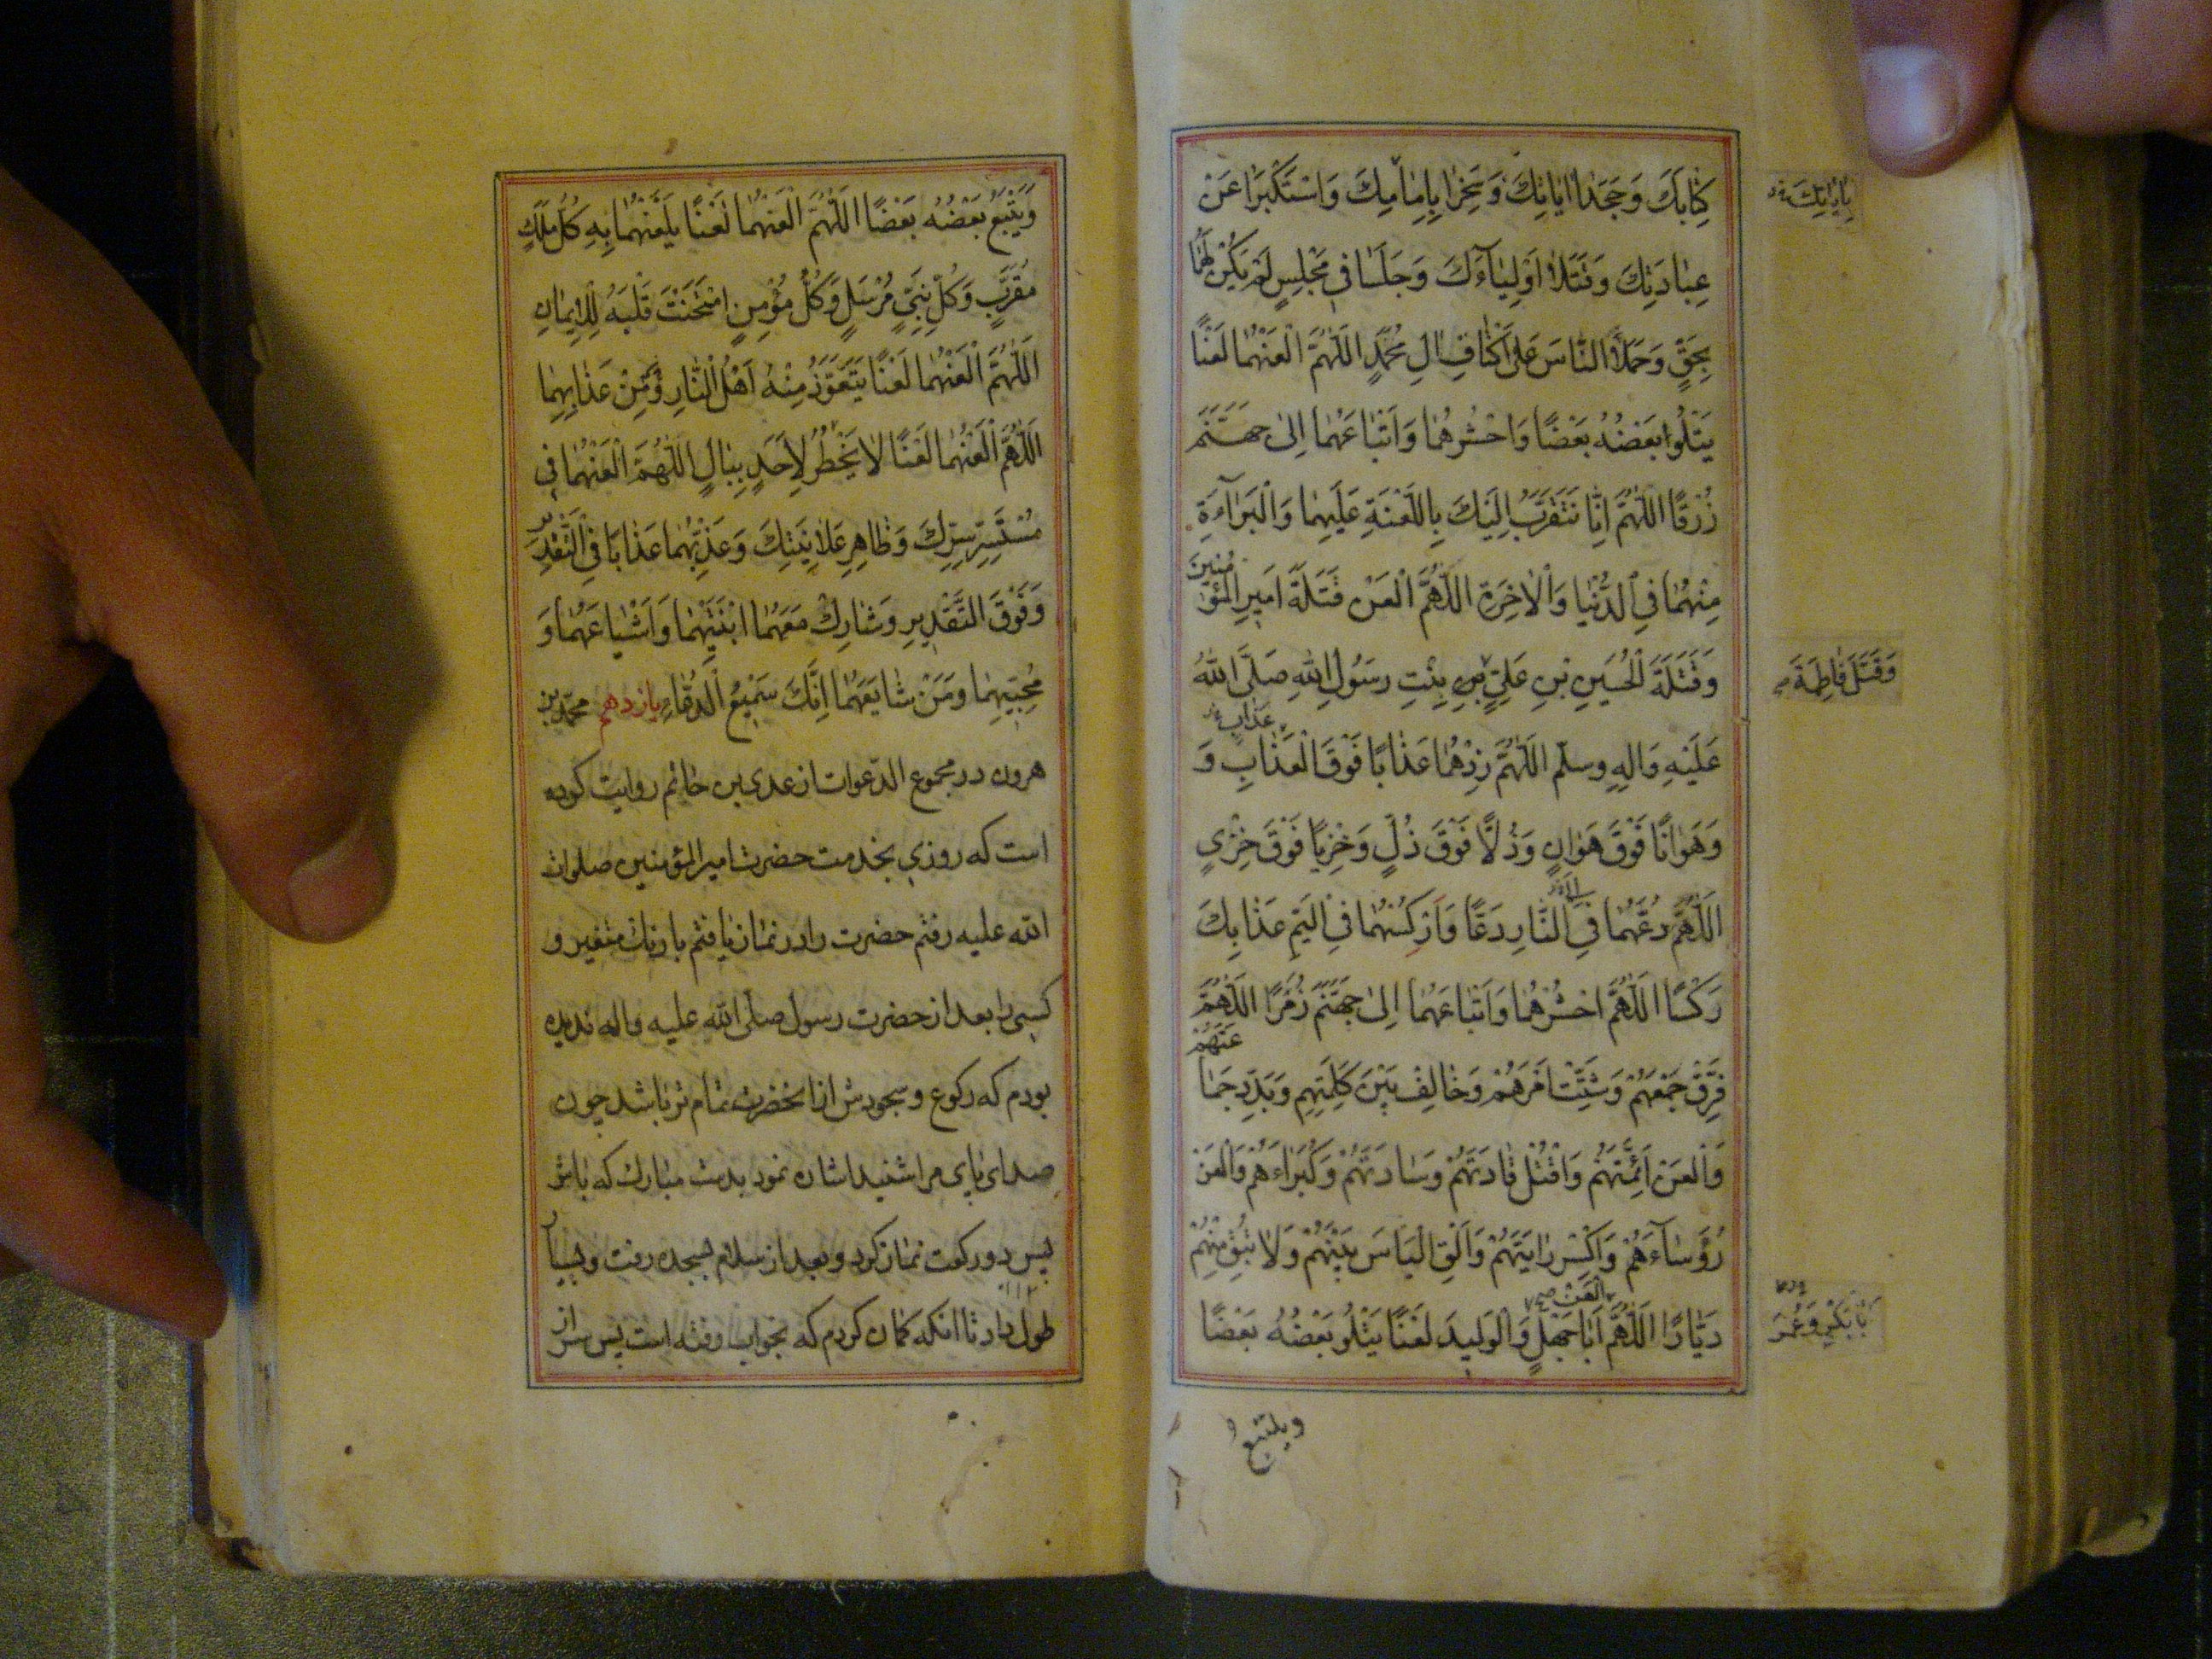 كِتابَكَ وَجَحَدا اٰياتِكَ وَسَخِرا بِاِمامِكَ وَاسْتَكْبَرا عَنْ
بِاٰياتِكَ
عِبادَتِكَ وَقَتَلا اَوْلِيآءَكَ وَجَلَسا فى مَجْلِسٍ لَمْ يَكُنْ لَهُما
بِحَقٍّ وَحَمَلَا النّاسَ عَلى اَكْتافِ اٰلِ مُحَمَّدٍ اَللّهُمَّ الْعَنْهُما لَعْنًا
يَتْلُوا بَعْضُهُ بَعْضًا وَاحْشُرْهُما وَاَتْباعَهُما اِلى جَهَنَّمَ
زُرْقًا اَللّهُمَّ اِنّا نَتَقَرَّبُ اِلَيْكَ بِاللَّعْنَةِ عَلَيْهِما وَالْبَرآءَةِ
مِنْهُما فِى الدُّنْيا وَالْاٰخِرَةِ اَللّهُمَّ الْعَنْ قَتَلَةَ اَميرِ الْمُؤْمِنينَ
وَقَتَلَةَ الْحُسَيْنِ بْنِ عَلِيٍّ بْنِ بِنْتِ رَسُولِ اللهِ صَلَّى اللهُ
وَقَتَلَ فاطِمَةَ
عَلَيْهِ وَاٰلِهِ وسلّم اَللّهُمَّ زِدْهُما عَذابًا فَوْقَ الْعَذابِ وَ
عَذابٍ
وَهَوانًا فَوْقَ هَوانٍ وَذُلًّا فَوْقَ ذُلٍّ وَخِزْيًا فَوْقَ خِزْيٍ
اَللّهُمَّ دُعَّهُما فِى النّارِ دَعًّا وَاَرْكِسْهُما فى اَليمِ عَذابِكَ
رَكْسًا اَللّهُمَّ احْشُرْهُما وَاَتْباعَهُما اِلى جَهَنَّمَ زُمَرًا اَللّهُمَّ
فَرِّقْ جَمْعَهُمْ وَشَتِّتْ اَمْرَهُمْ وَخالِفْ بَيْنَ كَلِمَتِهِمْ وَبَدِّدْ جَماعَتَهُمْ
وَالْعَنْ اَئِمَّتَهُمْ وَاقْتُلْ قادَتَهُمْ وَسادَتَهُمْ وَكُبَراءَهُمْ وَالْعَنْ
رُؤَسآءَهُمْ وَاكْسِرْ رايَتَهُمْ وَاَلْقِ الْبَاْسَ بَيْنَهُمْ وَلا تُبْقِ مِنْهُمْ
دَيّارًا اَللّهُمَّ الْعَنْ اَباجَهْلٍ وَالْوَليدَ لَعْنًا يَتْلُوا بَعْضُهُ بَعْضًا
اَبا بَكْرٍ وَعُمَرَ
ويتبع
وَيَتْبَعُ بَعْضُهُ بَعْضًا اَللّهُمَّ الْعَنْهُما لَعْنًا يَلْعَنُهُما بِهِ كُلُّ مَلَكٍ
مُقَرَّبٍ وَكُلُّ نَبِيٍّ مُرْسَلٍ وَكُلُّ مُؤْمِنٍ امْتَحَنْتَ قَلْبَهُ لِلْايمانِ
اَللّهُمَّ الْعَنْهُما لَعْنًا يَتَعَوَّذُ مِنْهُ اَهْلُ النّارِ وَمِنْ عَذابِهِما
اَللّهُمَّ الْعَنْهُما لَعْنًا لا يَخْطُرُ لِاَحَدٍ بِبالٍ اَللّهُمَّ الْعَنْهُما فى
مُسْتَسِرِّ سِرِّكَ وَظاهِرِ عَلانِيَتِكَ وَعَذِّبْهُما عَذابًا فِى التَّقْديرِ
وَفَوْقَ التَّقْديرِ وَشارِكْ مَعَهُما ابْنَتَيْهِما وَاَشْياعَهُما وَ
مُحِبّيهِما وَمَنْ شايَعَهُما اِنَّكَ سَميعُ الدُّعاءِ يازدهم محمد بن
هرون در مجموع الدّعوات از عدى بن حاتم روايت كرده
است كه روزى بخدمت حضرت امير المؤمنين صلوات
الله عليه رفتم حضرت را در نماز يافتم با رنك متغير و
كسى را بعد از حضرت رسول صلّى الله عليه واله نديده
بودم كه ركوع و سجودش از انحضرت تمام تر باشد چون
صداى پاى مرا شنيد اشاره نمود بدست مبارك كه باش
پس دو ركعت نماز كرد و بعد از سلام بسجده رفت و بسيار
طول داد تا انكه كمان كردم كه بخواب رفته است پس سر از